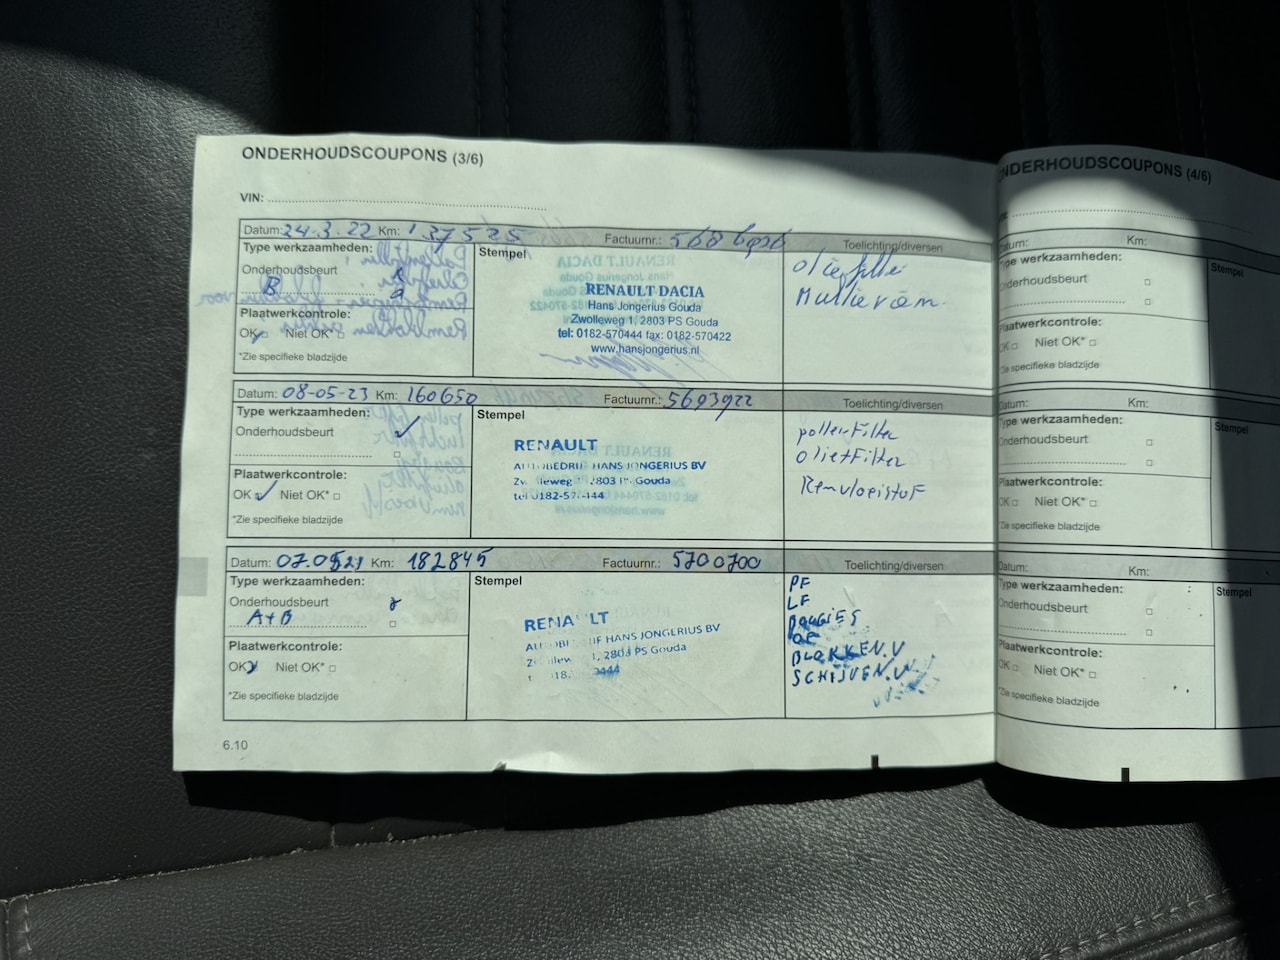 ONDERHOUDSCOUPONS (3/6)
VIN:
Datum: 24.3.22 Km: 137525 Factuurnr.: Toelichting/diversen
Type werkzaamheden:
Stempel
Onderhoudsbeurt
B
Plaatwerkcontrole:
OK Niet OK*
*Zie specifieke bladzijde
RENAULT DACIA
Hans Jongerius Gouda
Zwolleweg 1, 2803 PS Gouda
tel: 0182-570444 fax: 0182-570422
www.hansjongerius.nl
oliefilter
Multiriem
Datum: 08-05-23 Km: 160650 Factuurnr.: 5693922 Toelichting/diversen
Type werkzaamheden:
Stempel
Onderhoudsbeurt
Plaatwerkcontrole:
OK Niet OK*
*Zie specifieke bladzijde
RENAULT
HANS JONGERIUS BV
2803 PS Gouda
pollenfilter
Remvloeistof
Datum: Km: 182845 Factuurnr.: 5700700 Toelichting/diversen
Type werkzaamheden:
Stempel
Onderhoudsbeurt
A+B
Plaatwerkcontrole:
OK Niet OK*
*Zie specifieke bladzijde
HANS JONGERIUS BV
2803 PS Gouda
PF
LF
BOUGIES
OF
BLOKKEN.V
SCHIJVEN.V
6.10
ONDERHOUDSCOUPONS (4/6)
Datum: Km:
Type werkzaamheden:
Stempel
Onderhoudsbeurt
Plaatwerkcontrole:
OK Niet OK*
*Zie specifieke bladzijde
Datum: Km:
Type werkzaamheden:
Stempel
Onderhoudsbeurt
Plaatwerkcontrole:
OK Niet OK*
*Zie specifieke bladzijde
Datum: Km:
Type werkzaamheden:
Stempel
Onderhoudsbeurt
Plaatwerkcontrole:
OK Niet OK*
*Zie specifieke bladzijde